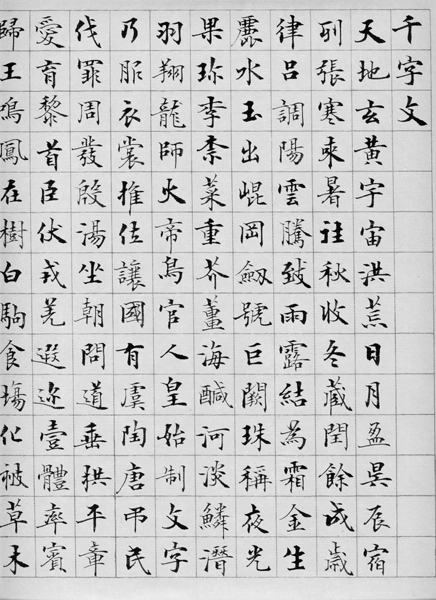 千字文
天地玄黃宇宙洪荒日月盈昃辰宿
列張寒来暑往秋收冬藏閏餘成歲
律呂調陽雲騰致雨露結為霜金生
麗水玉出崐岡劔號巨闕珠稱夜光
果珎李柰菜重芥薑海醎河淡鱗潛
羽翔龍師火帝鳥官人皇始制文字
乃服衣裳推位讓國有虞陶唐弔民
伐罪周發殷湯坐朝問道垂拱平章
愛育黎首臣伏戎羌遐迩壹體率賓
歸王鳴鳳在樹白駒食塲化被草木